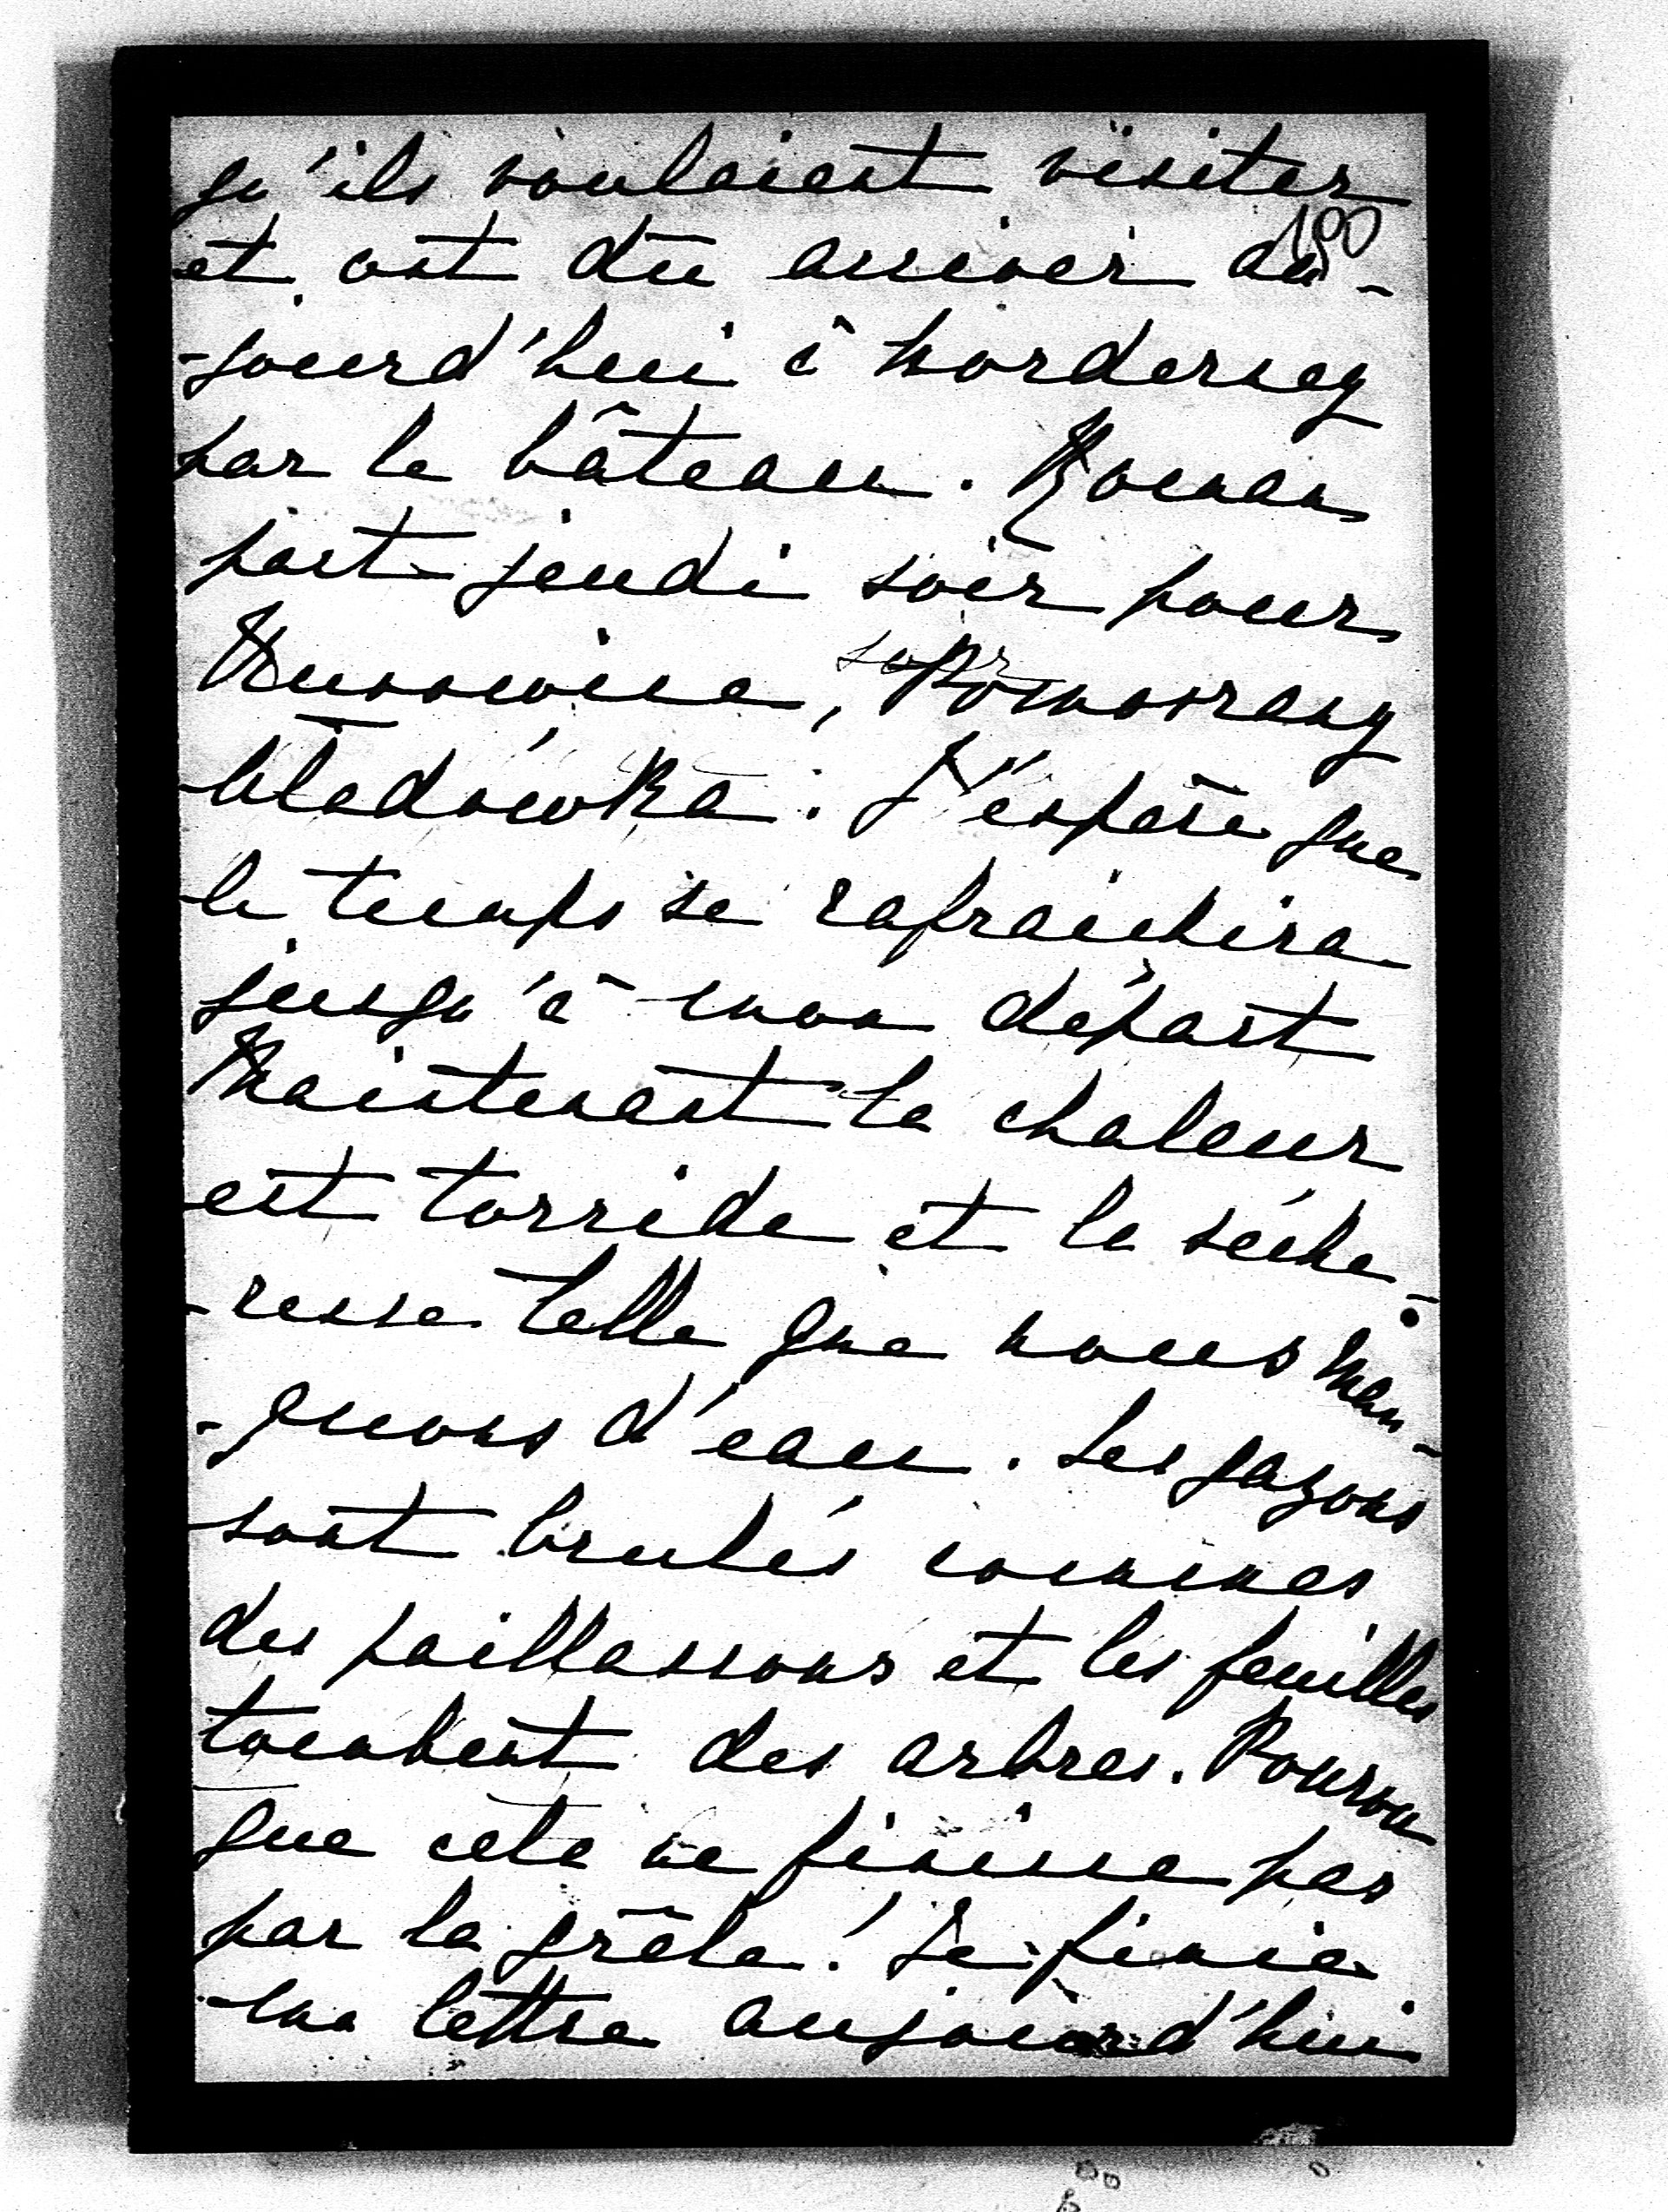 qu'ils voulaient visiter
190
et ont dû arriver au-
-jourd'hui à Norderney
par le bâteau. Roman
part jeudi soir pour
Kurowice, Pomorzany
błedówka. J'espère que
le temps se rafraichira
jusqu'à mon départ
Maintenant la chaleur
est torride et la séche-
-resse telle que nous man-
-quons d'eau. Les gazons
sont brulés commes
des paillassons et les feuilles
tombent des arbres. Pourvu
que cela ne finisse pas
par la grêle! Je finie
ma lettre aujourd'hui